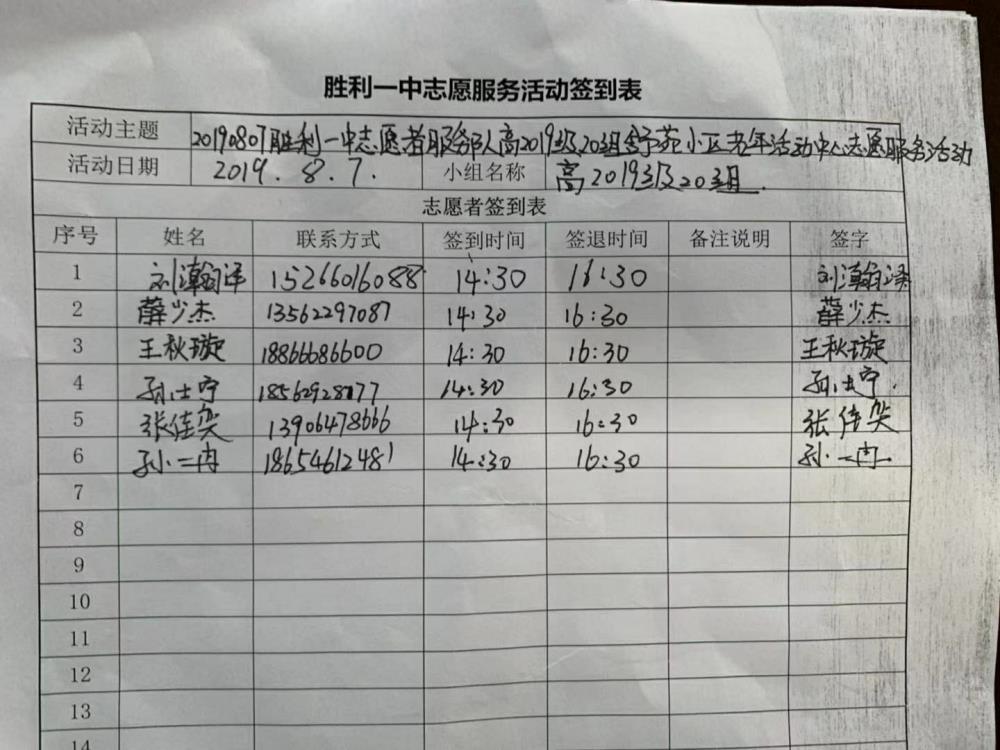 胜利一中志愿服务活动签到表
活动主题 20190807胜利一中志愿者服务队高2019级20组舒苑小区老年活动中心志愿服务活动
活动日期 2019.8.7. 小组名称 高2019级20组.
志愿者签到表
序号 姓名 联系方式 签到时间 签退时间 备注说明 签字
1 刘瀚泽 15266016088 14:30 16:30 刘瀚泽
2 薛少杰 13562297087 14:30 16:30 薛少杰
3 王秋璇 18866686600 14:30 16:30 王秋璇
4 孙士宁 14:30 16:30 孙士宁.
5 张佳奕 13906478666 14:30 16:30 张佳奕
6 孙一冉 18654612481 14:30 16:30 孙一冉
7
8
9
10
11
12
13
14